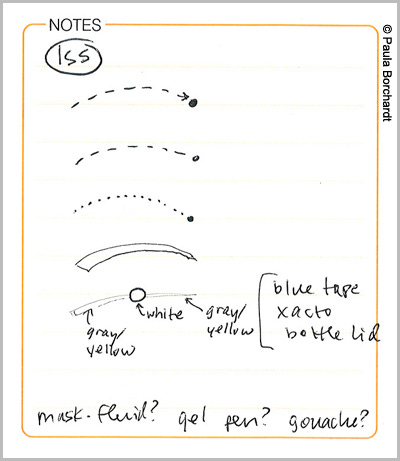 NOTES
ISS
© Paula Borchardt
gray/
yellow
white
gray/
yellow
blue tape
xacto
bottle lid
mask. fluid? gel pen? gouache?